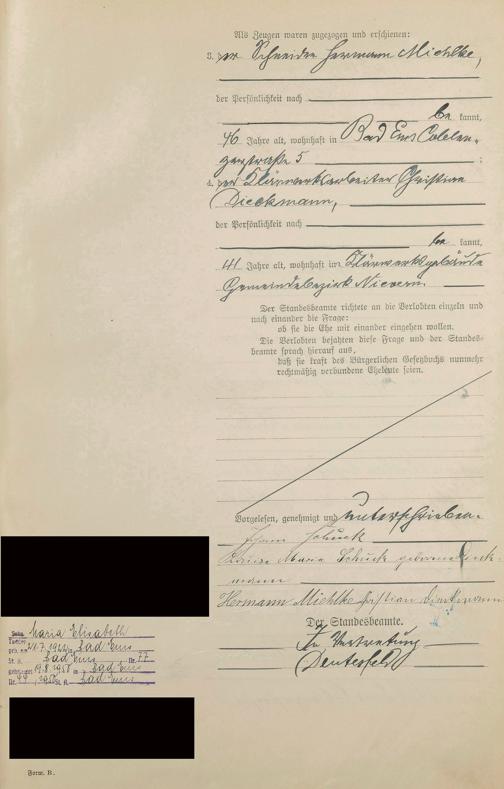 Als Zeugen waren zugezogen und erschienen:
3. der Schneider Hermann Miehlke,
der Persönlichkeit nach
be kannt,
46 Jahre alt, wohnhaft in Bad Ems Coblen-
zerstraße 5 ;
4. der Klärwerksarbeiter Christian
Dieckmann,
der Persönlichkeit nach
be kannt,
41 Jahre alt, wohnhaft im Klärwerksgebäude
Gemeindebezirk Nievern.
Der Standesbeamte richtete an die Verlobten einzeln und
nach einander die Frage:
ob sie die Ehe mit einander eingehen wollen.
Die Verlobten bejahten diese Frage und der Standes-
beamte sprach hierauf aus,
daß sie kraft des Bürgerlichen Gesetzbuchs nunmehr
rechtmäßig verbundene Eheleute seien.
Vorgelesen, genehmigt und unterschrieben.
Johann Schuck
Maria Schuck geborene Dieck-
mann
Hermann Miehlke Christian Dieckmann
Der Standesbeamte.
In Vertretung
Maria Elisabeth
Tochter
geb. am 21.7.1922 in Bad Ems
St. A. Bad Ems Nr. 77
19.8.1950 in Bad Ems
Nr. 99, 1950 St. A. Bad Ems
Form. B.